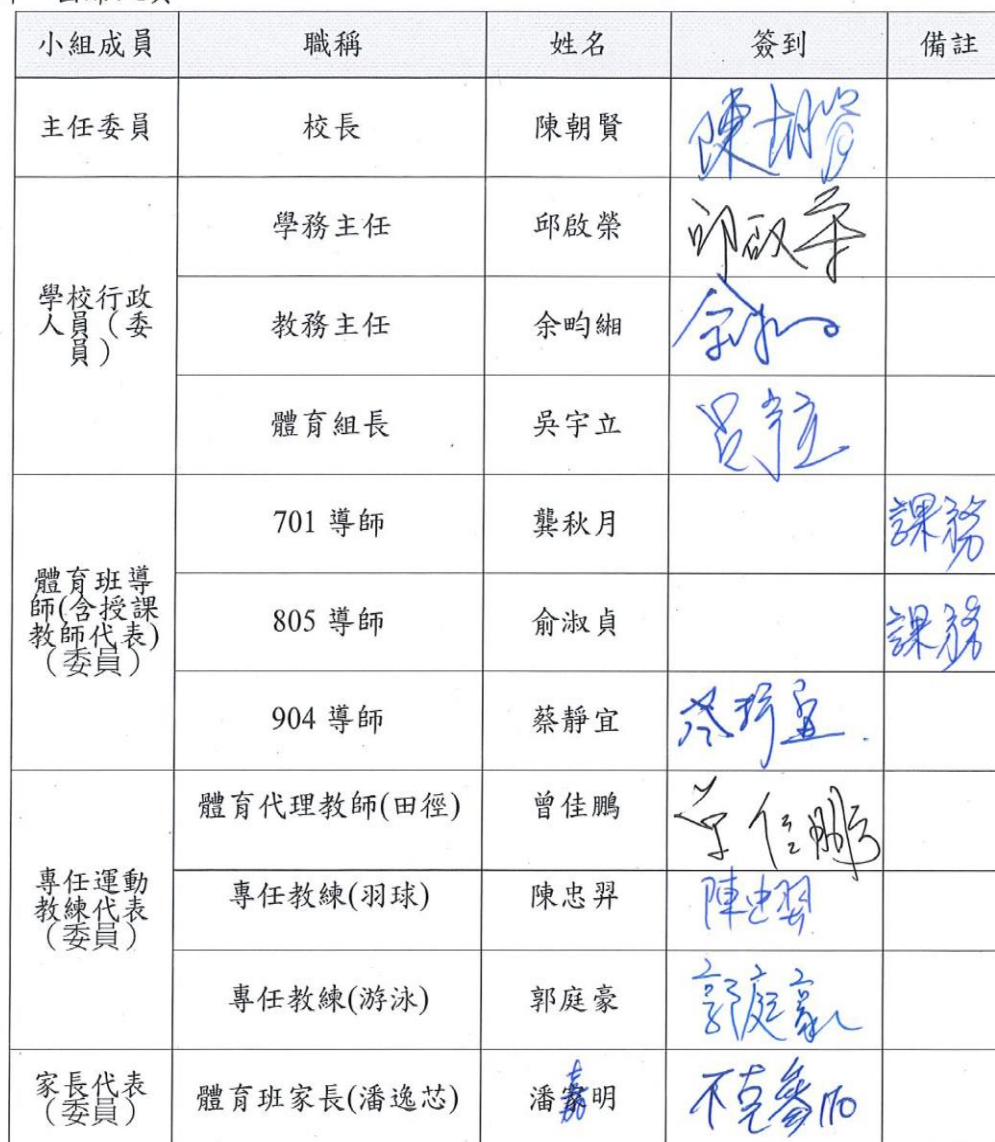 小組成員 職稱 姓名 簽到 備註
主任委員 校長 陳朝賢 陳朝賢
學校行政
人員（委
員）
學務主任 邱啟榮 邱啟榮
教務主任 余昀緗
體育組長 吳宇立 吳宇立
體育班導
師(含授課
教師代表)
（委員）
701 導師 龔秋月 課務
805 導師 俞淑貞 課務
904 導師 蔡靜宜 蔡靜宜
專任運動
教練代表
（委員）
體育代理教師(田徑) 曾佳鵬
專任教練(羽球) 陳忠羿 陳忠羿
專任教練(游泳) 郭庭豪 郭庭豪
家長代表
（委員）
體育班家長(潘逸芯) 潘嘉明 不克參加